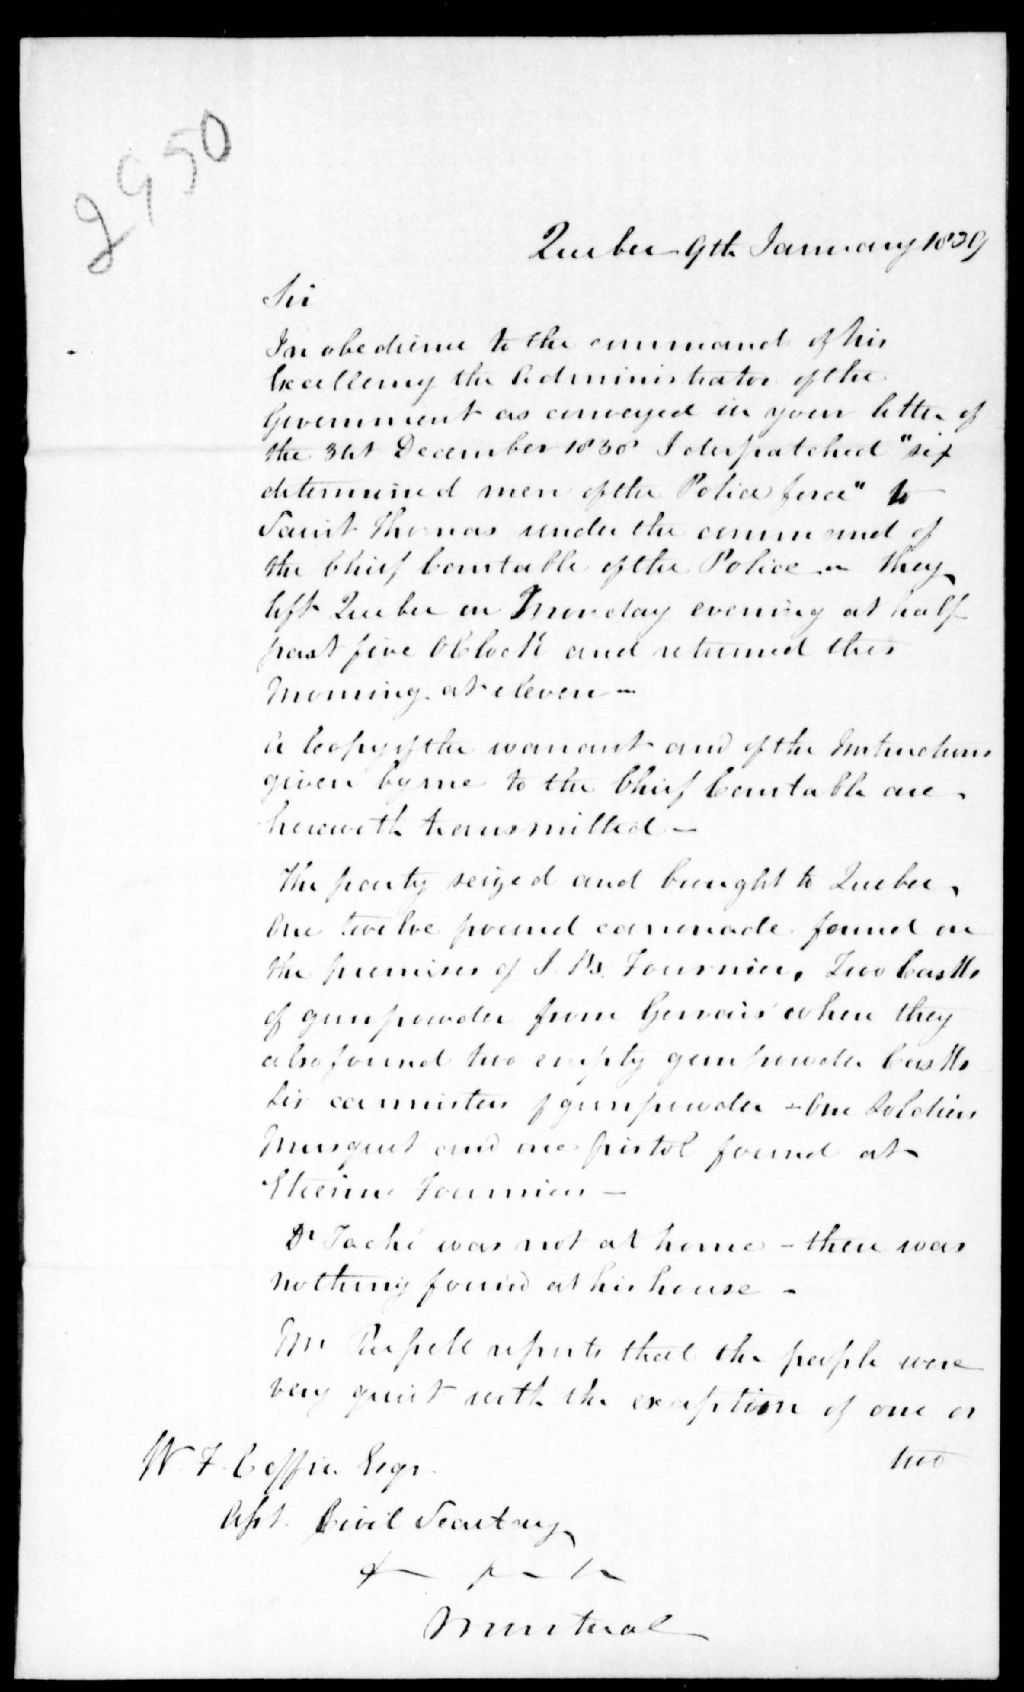 2950
Quebec 9th January 1839
Sir
In obedience to the command of his
Excellency the Administrator of the
Government as conveyed in your letter of
the 31st December 1838 I despatched "six
determined men of the Police force" to
Saint Thomas under the command of
the Chief Constable of the Police — they
left Quebec on Monday evening at half
past five OClock and returned this
Morning at eleven —
A Copy of the warrant and of the Instructions
given by me to the Chief Constable are
herewith transmitted —
The party seized and brought to Quebec,
One twelve pound carronade found on
the premises of J. Bte. Fournier, Two Casks
of gunpowder from Gervais where they
also found two empty gunpowder Casks
Six cannisters of gunpowder — One Soldiers
Musquet and one pistol found at
Etienne Fourniers —
Dr Taché was not at home — there was
nothing found at his house —
Mr Russell reports that the people were
very quiet with the exception of one or
two
W. F. Coffin Esqr.
Asst. Civil Secretary
Montreal